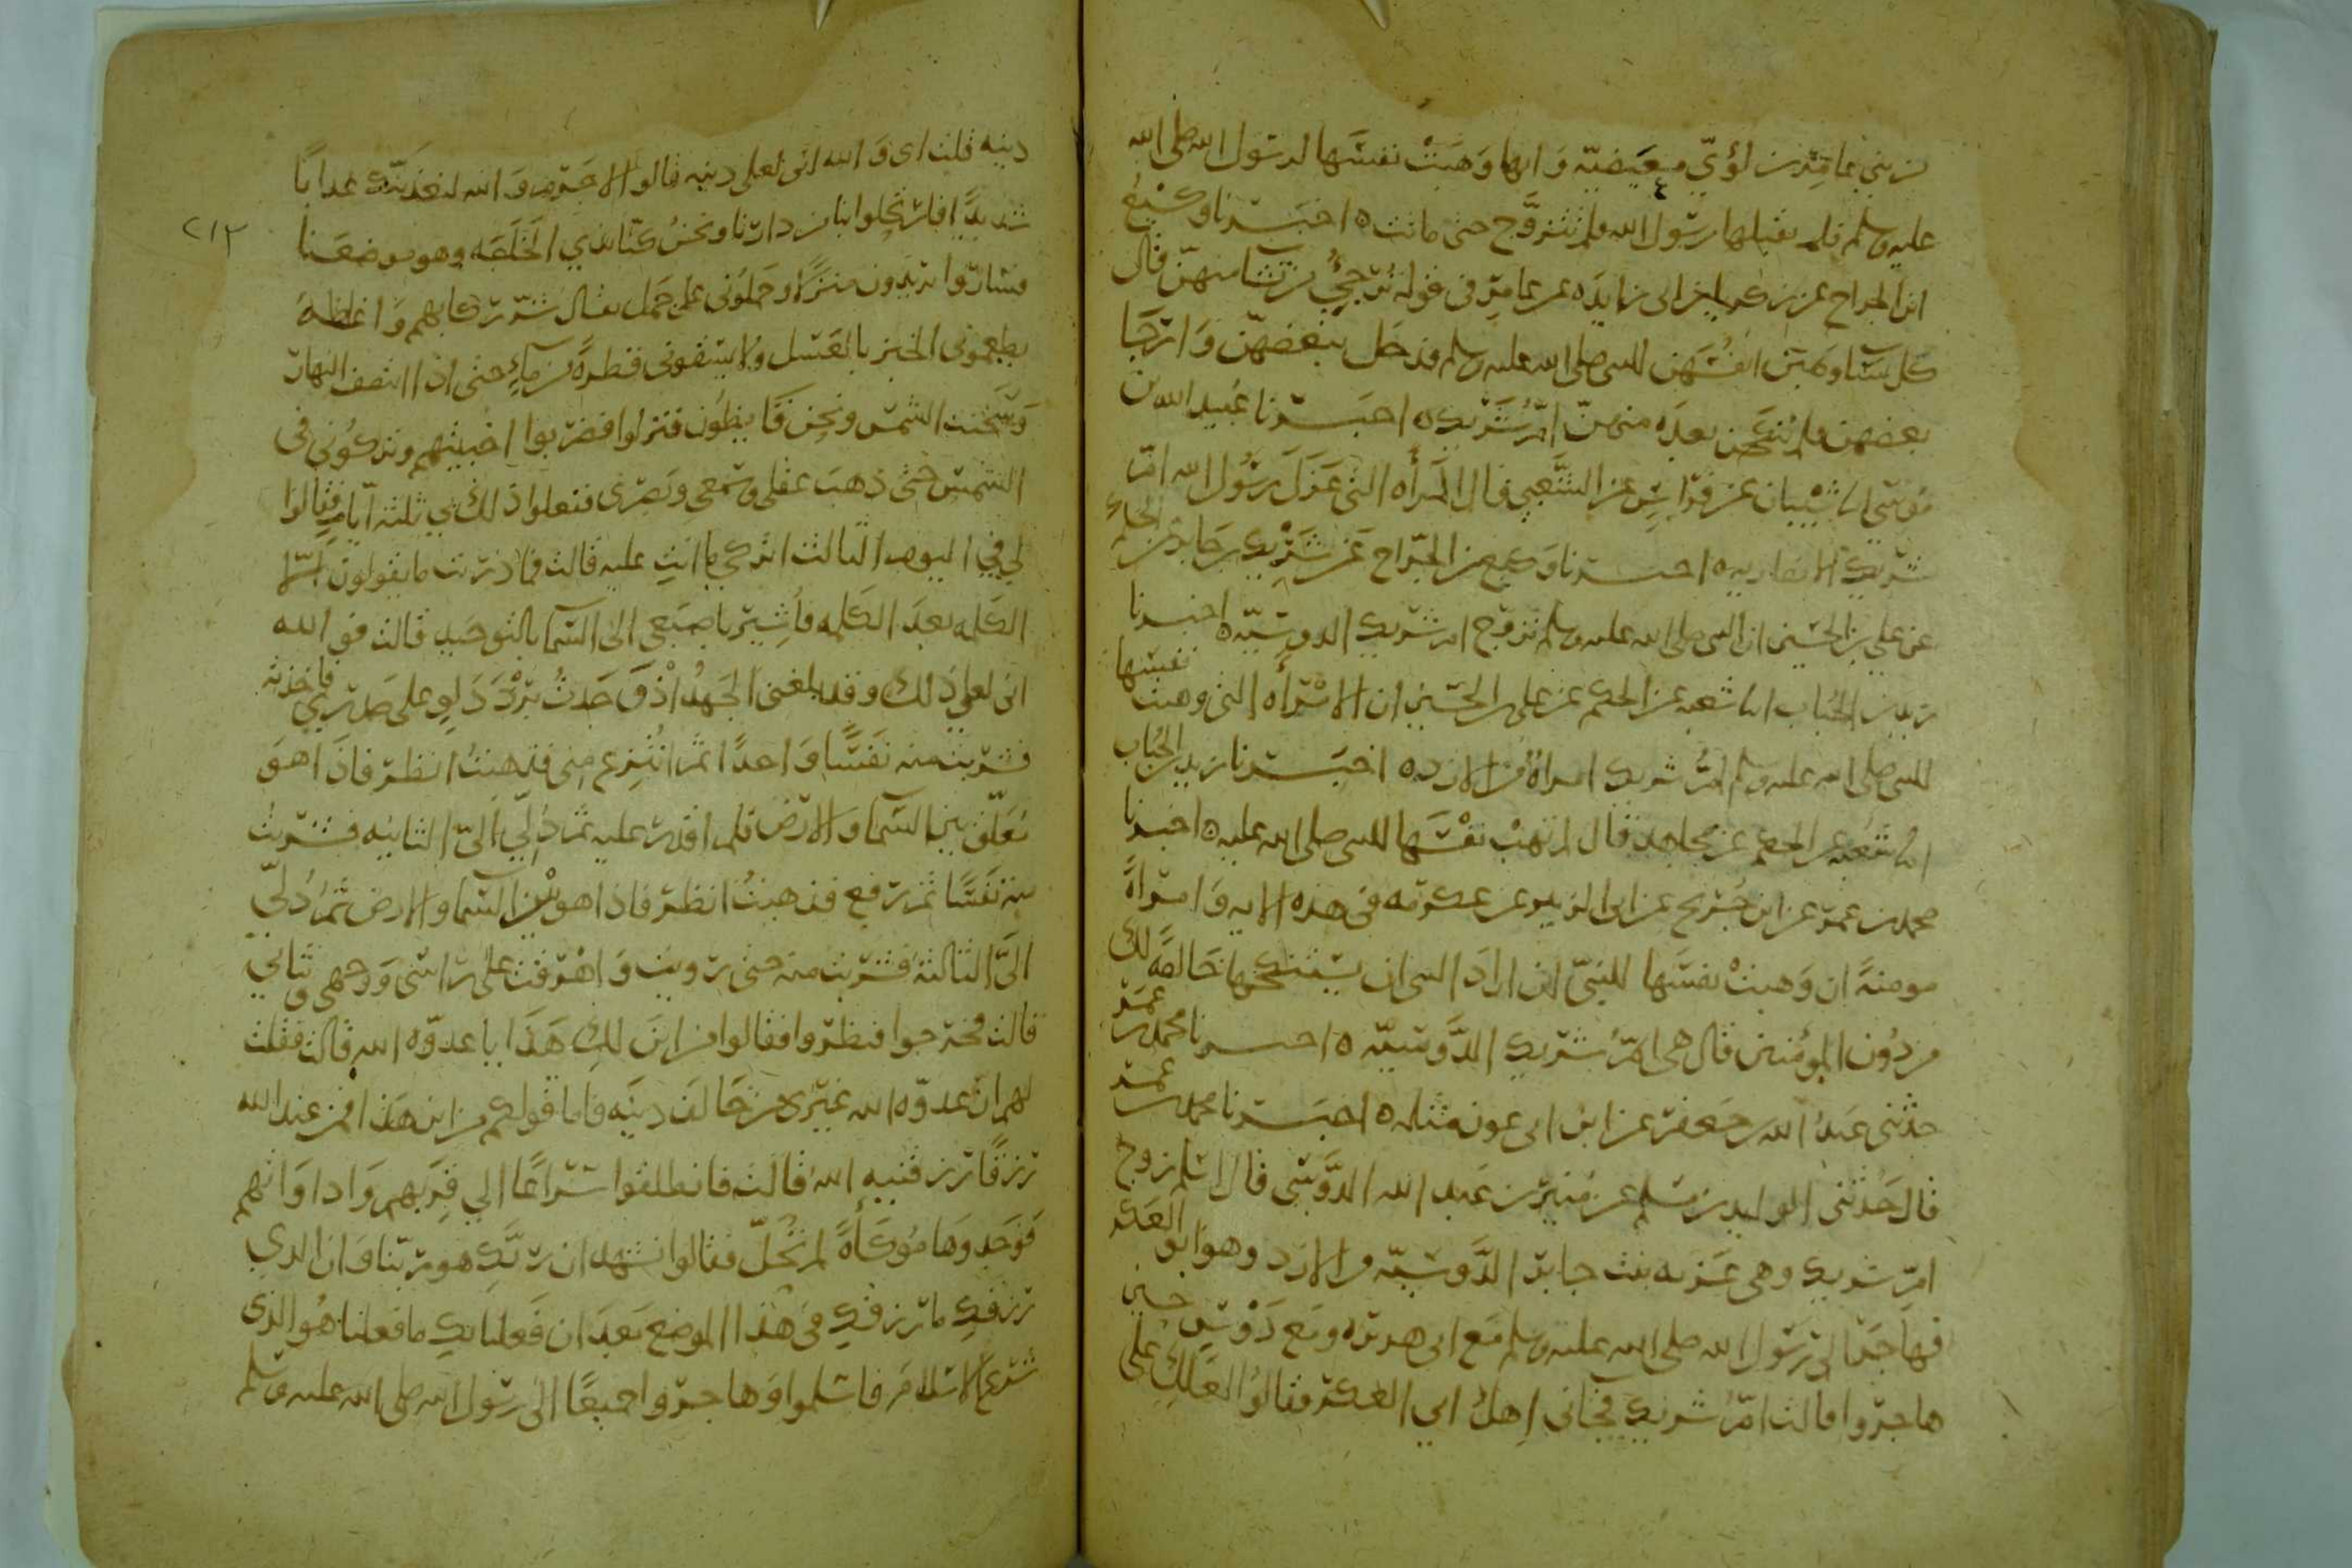 من بني عامر بن لؤي معيصيه وانها وهبت نفسها لرسول الله صلى الله
عليه وسلم فلم يقبلها رسول الله فلم تتزوج حتى ماتت ه اخبرنا وكيع
ابن الجراح عن زكريا بن ابي زايده عن عامر في قوله ترجي من تشا منهن قال
كل نسا وهبن انفسهن للنبي صلى الله عليه وسلم فدخل ببعضهن وارجا
بعضهن فلم ينكحن بعده منهن ام شريك ه اخبرنا عبيد الله بن
موسى انا شيبان عن فراس عن الشعبي قال المراه التي عزل رسول الله ام
شريك الانصاريه ه اخبرنا وكيع بن الجراح عن شريك عن جابر عن الحكم
عن علي بن الحسين ان النبي صلى الله عليه وسلم تزوج ام شريك الدوسيه ه اخبرنا
زيد بن الحباب انا شعبه عن الحكم عن علي بن الحسين ان الامراه التي وهبت نفسها
للنبي صلى الله عليه وسلم ام شريك امراة من الازد ه اخبرنا زيد بن الحباب
انا شعبه عن الحكم عن مجاهد قال لم تهب نفسها للنبي صلى الله عليه ه اخبرنا
محمد بن عمر عن ابن جريج عن ابي الزبير عن عكرمه في هذه الايه وامراة
مومنة ان وهبت نفسها للنبي ان اراد النبي ان يستنكحها خالصة لك
من دون المؤمنين قال هي ام شريك الدوسيه ه اخبرنا محمد بن عمر
حدثني عبد الله بن جعفر عن ابن ابي عون مثله ه اخبرنا محمد بن عمر
قال حدثني الوليد بن مسلم عن منير بن عبد الله الدوسي قال اسلم زوج
ام شريك وهي غزيه بنت جابر الدوسيه من الازد وهو ابو العكر
فهاجر الى رسول الله صلى الله عليه وسلم مع ابي هريره ومع دوس حين
هاجروا قالت ام شريك فجاني اهل ابي العكر فقالوا لعلك على
٢١٢
دينه قلت اي والله اني لعلى دينه قالوا لا جرم والله لنعذبنك عذابا
شديدا فارتحلوا بنا من دارنا ونحن كنا بذي الخلصه وهو موضعنا
فساروا يريدون منزلا وحملوني على جمل ثفال شر ركابهم واغلظه
يطعموني الخبز بالعسل ولا يسقوني قطرة من ماء حتى اذا انتصف النهار
وسخنت الشمس ونحن قايظون فنزلوا فضربوا اخبيتهم وتركوني في
الشمس حتى ذهب عقلي وسمعي وبصري ففعلوا ذلك بي ثلثه ايام فقالوا
لي في اليوم الثالث اتركي ما انت عليه قالت فما دريت ما يقولون الا
الكلمه بعد الكلمه فاشير باصبعي الى السما بالتوحيد قالت فوالله
اني لعلى ذلك وقد بلغني الجهد اذ وجدت برد دلو على صدري فاخذته
فشربت منه نفسا واحدا ثم انتزع مني فذهبت انظر فاذا هو
معلق بين السما والارض فلم اقدر عليه ثم دلي الي الثانيه فشربت
منه نفسا ثم رفع فذهبت انظر فاذا هو بين السما والارض ثم دلي
الي الثالثة فشربت منه حتى رويت واهرقت على راسي ووجهي وثيابي
قالت فخرجوا فنظروا فقالوا من اين لك هذا يا عدوة الله قالت فقلت
لهم ان عدوة الله غيري من خالف دينه فاما قولكم من اين هذا فمن عند الله
رزقا رزقنيه الله قالت فانطلقوا سراعا الى قربهم واداواتهم
فوجدوها موكأة لم تحل فقالوا نشهد ان ربك هو ربنا وان الذي
رزقك ما رزقك في هذا الموضع بعد ان فعلنا بك ما فعلنا هو الذي
شرع الاسلام فاسلموا وهاجروا جميعا الى رسول الله صلى الله عليه وسلم